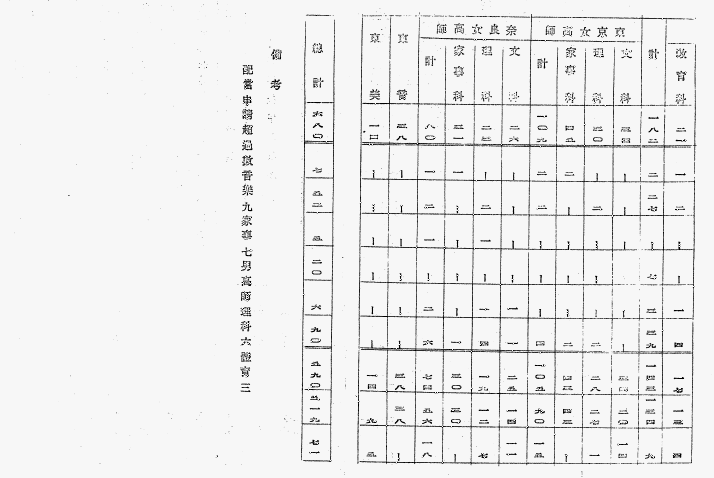 教育科 二一 一 二 | | 一 四 一七 一三 四
計 一八二 二 二七 | 七 三 三九 一四三 一三四 九
東京女高師
文科 三四 | | | | | | 三四 二〇 一四
理科 三〇 | 二 | | | 二 二八 二七 一
家事科 四五 二 | | | | 二 四三 四三 |
計 一〇九 二 二 | | | 四 一〇五 九〇 一五
奈良女高師
文科 二六 | | | | 一 一 二五 一四 一一
理科 二三 | 二 一 | 一 四 一九 一二 七
家事科 三一 一 | | | | 一 三〇 三〇 |
計 八〇 一 二 一 | 二 六 七四 五六 一八
東音 三八 | | | | | | 三八 三八 |
東美 一四 | | | | | | 一四 九 五
總計 六八〇 七 五二 五 二〇 六 九〇 五九〇 五一九 七一
備考
配當申請超過數音樂九家事七男高師理科六體育三